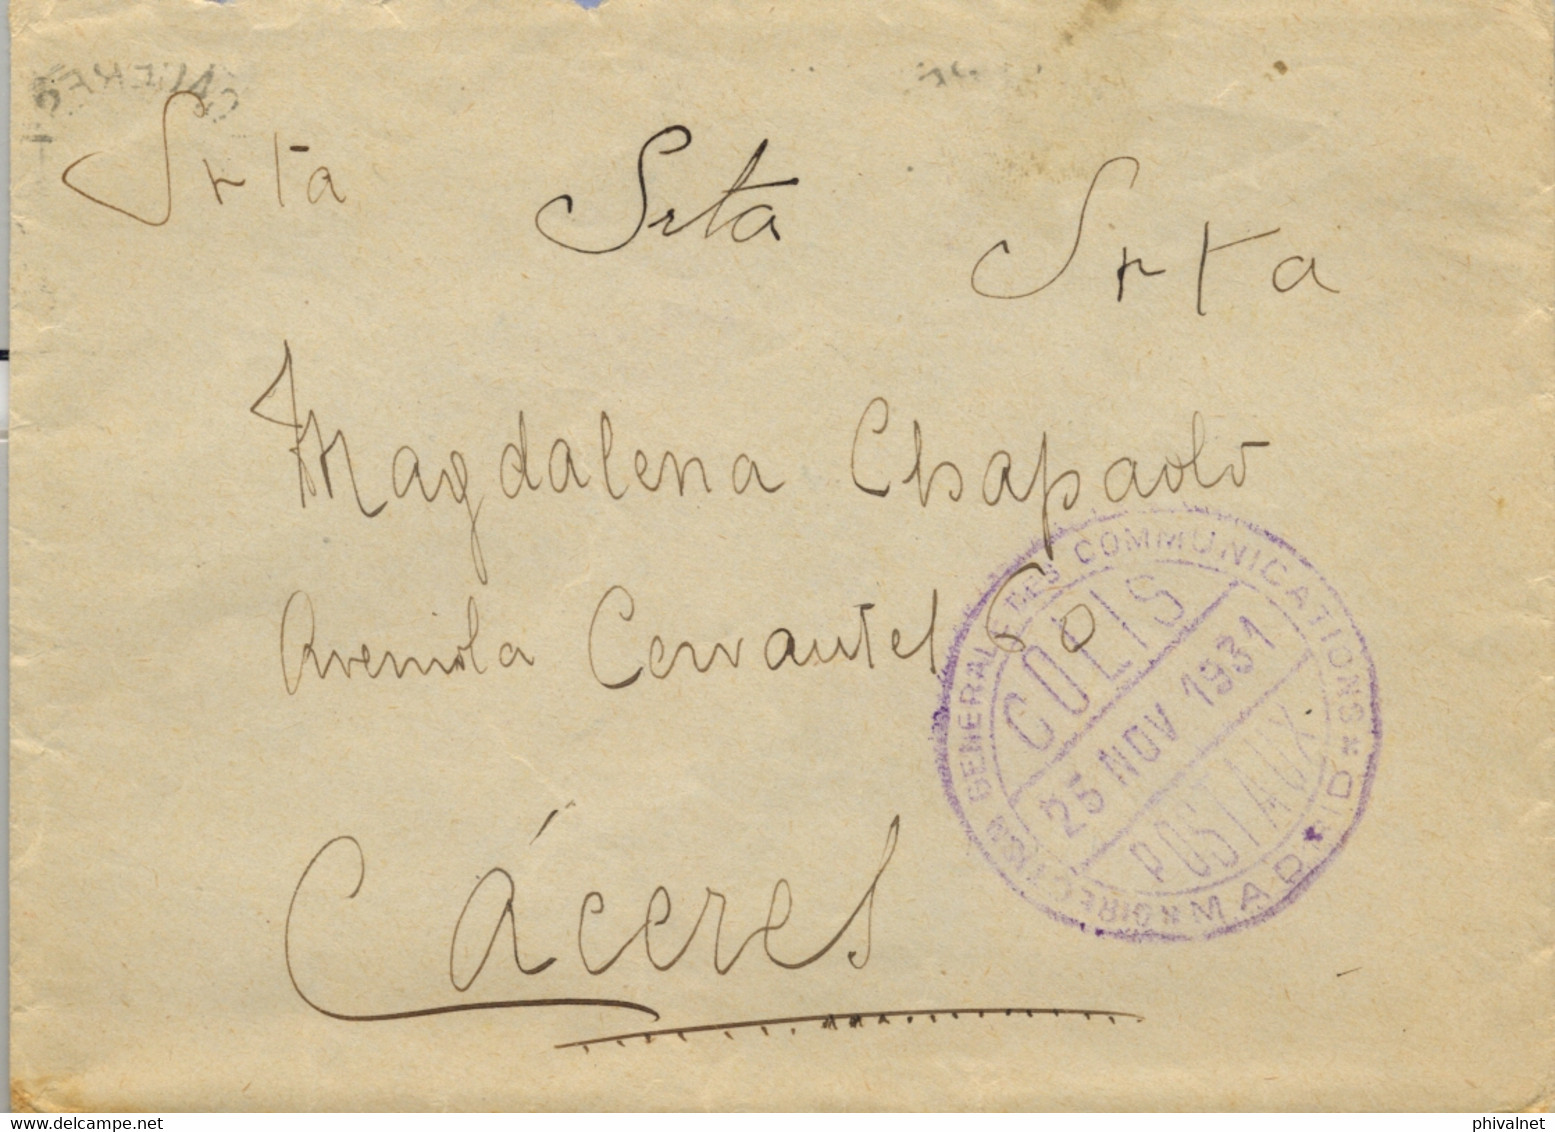 CACERES
Srta Srta Srta
Magdalena Chapado
Avenida Cervantes 60
Cáceres
DIRECTION GENERALE DES COMMUNICATIONS
COLIS
25 NOV 1931
POSTAUX
MADRID
www.todocoleccion.net
phivalnet